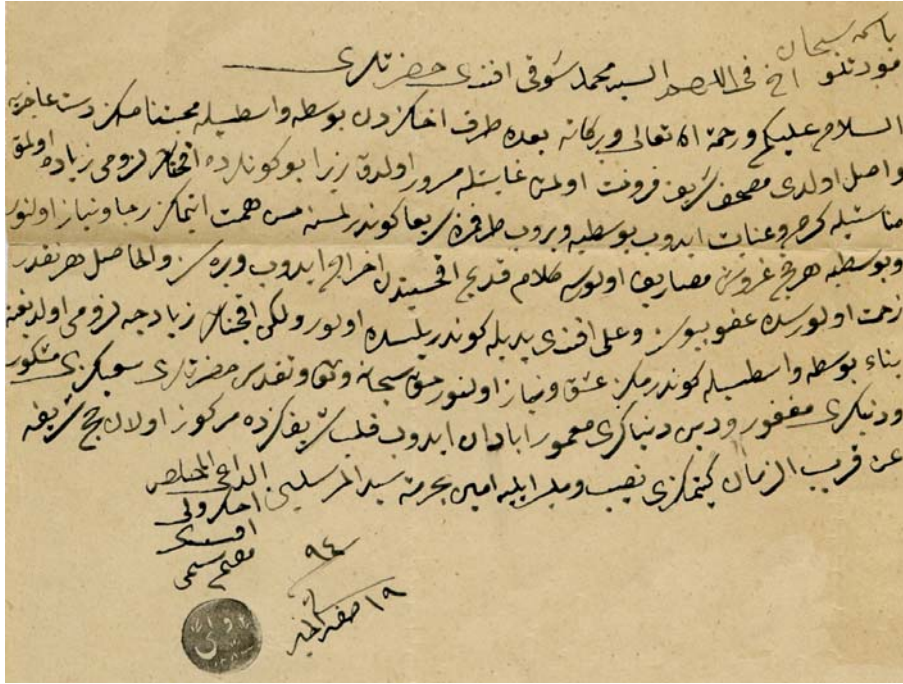 باسمه سبحان
مودتلو اخ فى الله السيد محمد شوقى افندى حضرتلرى
السلام عليكم ورحمة الله تعالى وبركاته بعده طرف اخكزدن بوسطه واسطيله محبتنامه كز دست عاجزيه
واصل اولدى مصحف شريف فروخت اولمش غايتله مسرور اولدق زيرا بو كونلرده اقچه نك لزومى زياده اولمق
مناسبتيله كرم وعنايت ايدوب بوسطيه ويروب طرفمزه سريعا كوندرلمسنه همت ايتمكز رجا ونياز اولنور
وبوسطيه هر قچ غروش مصاريف اولورسه كلام قديم اقچسيندن اخراج ايدوب ويره سز والحاصل هر نقدر
زحمت اولورسده عفو بيورك وعلى افندى يديله كوندريلسده اولور ولكن اقچه نك زيادجه لزومى اولديغنه
بناء بوسطه واسطسيله كوندرمكز عشق ونياز اولنور حق سبحانه وتعالى وتقدس حضرتلرى سعيكزى مشكور
وذنبكزى مغفور ودين دنياكزى معمور ابادان ايدوب قلب شريفكزده مركوز اولان حج شريفه
عن قريب الزمان كيتمكزى نصيب وميسر ايليه امين بحرمة سيد المرسلين
الداعى المخلص
اولى
افندى
مقيم
٩٤
١٩ صفر الخير